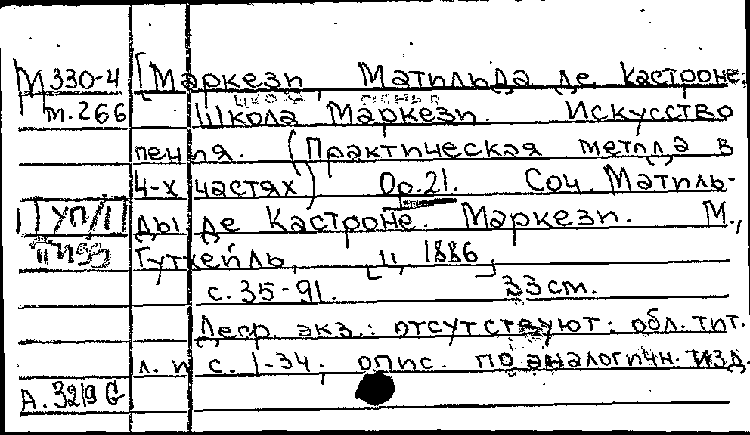 М330-4 [Маркези, Матильда де Кастроне.
т.266 Школа Маркези. Искусство
пения. (Практическая метода в
4-х частях) Ор.21. Соч. Матиль-
ды де Кастроне. Маркези. М.,
Гуткейль, ц. 1886,
с. 35-91. 33см.
Деф. экз.: отсутствуют: обл. тит.
л. и с. 1-34; опис. по аналогичн. изд.